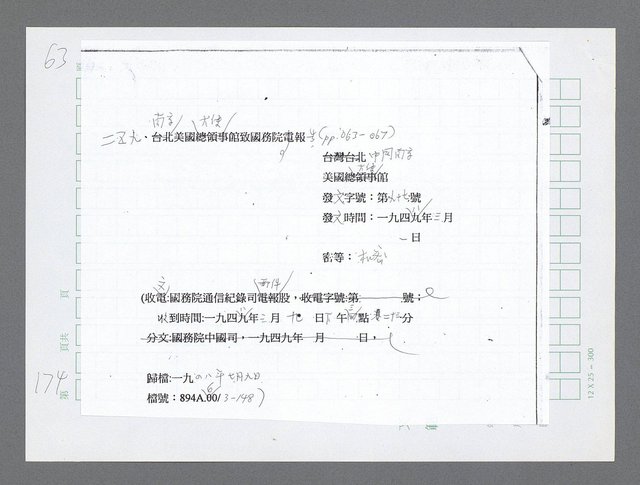 63
南京 大使
二五九、台北美國總領事館致國務院電報 (pp.063-067)
台灣台北 中國南京
大使
美國總領事館
發文字號：第六十七號
發文時間：一九四九年三月
一日
密等：機密
文
(收電:國務院通信紀錄司電報股，收電字號:第 號；
收到時間:一九四九年三月 十 日 下午 點 二十 分
分文:國務院中國司，一九四九年 月 日，
歸檔:一九四八年七月九日
6
檔號：894A.00/3-148)
頁
共
頁
174
第
12 X 25 = 300